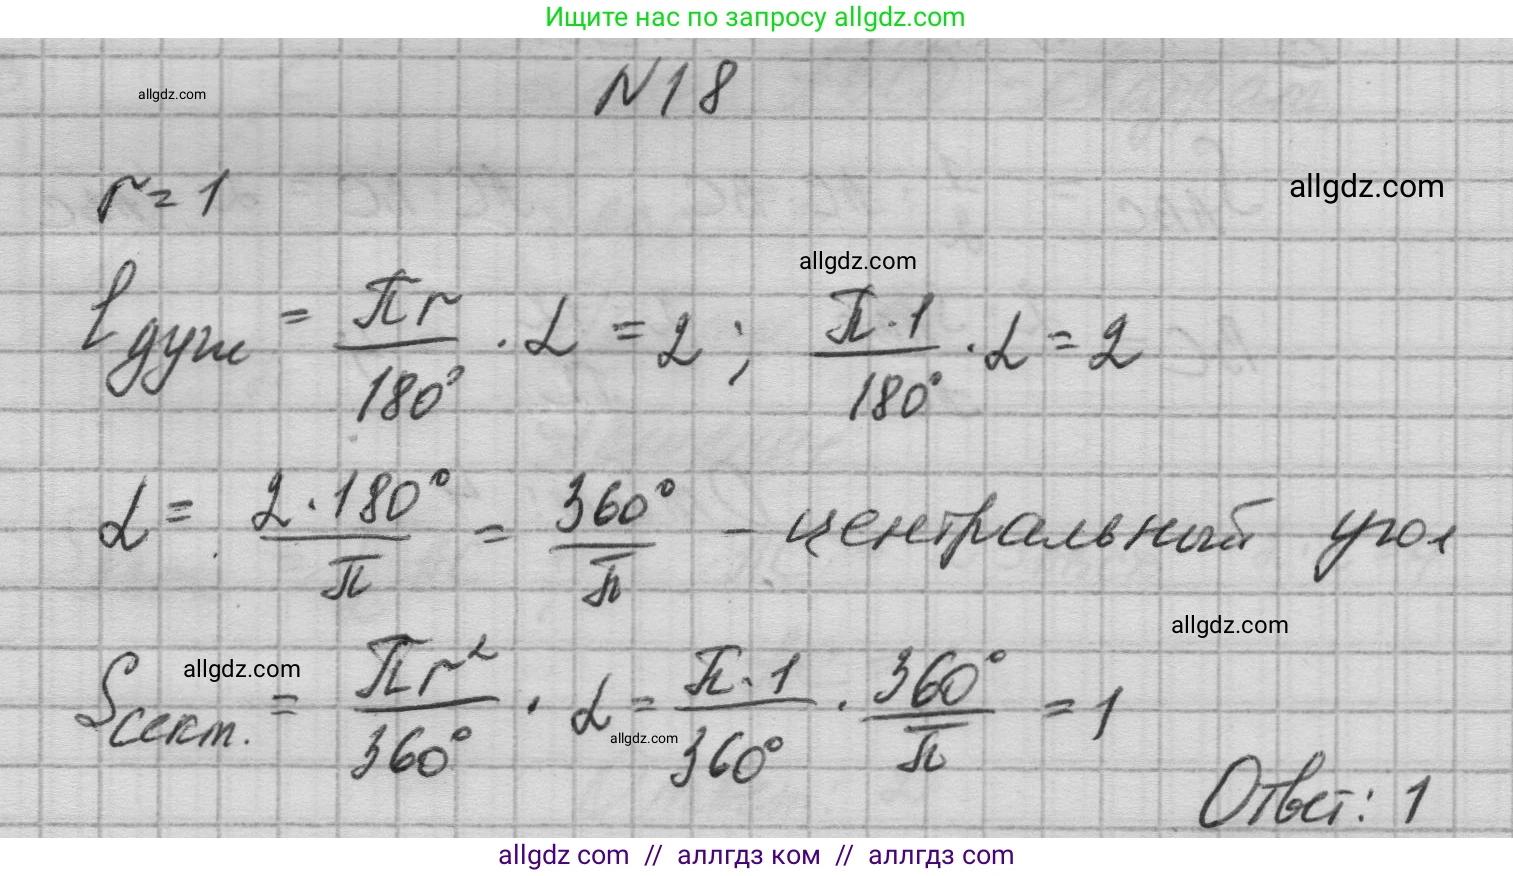 Ищите нас по запросу allgdz.com
allgdz.com
N18
r = 1
allgdz.com
allgdz.com
l дуги = πr/180° · α = 2 ; π·1/180° · α = 2
α = 2·180°/π = 360°/π – центральный угол
allgdz.com
allgdz.com
Sсект. = πr²/360° · α = π·1/360° · 360°/π = 1
allgdz.com
Ответ: 1
allgdz com // аллгдз ком // аллгдз com